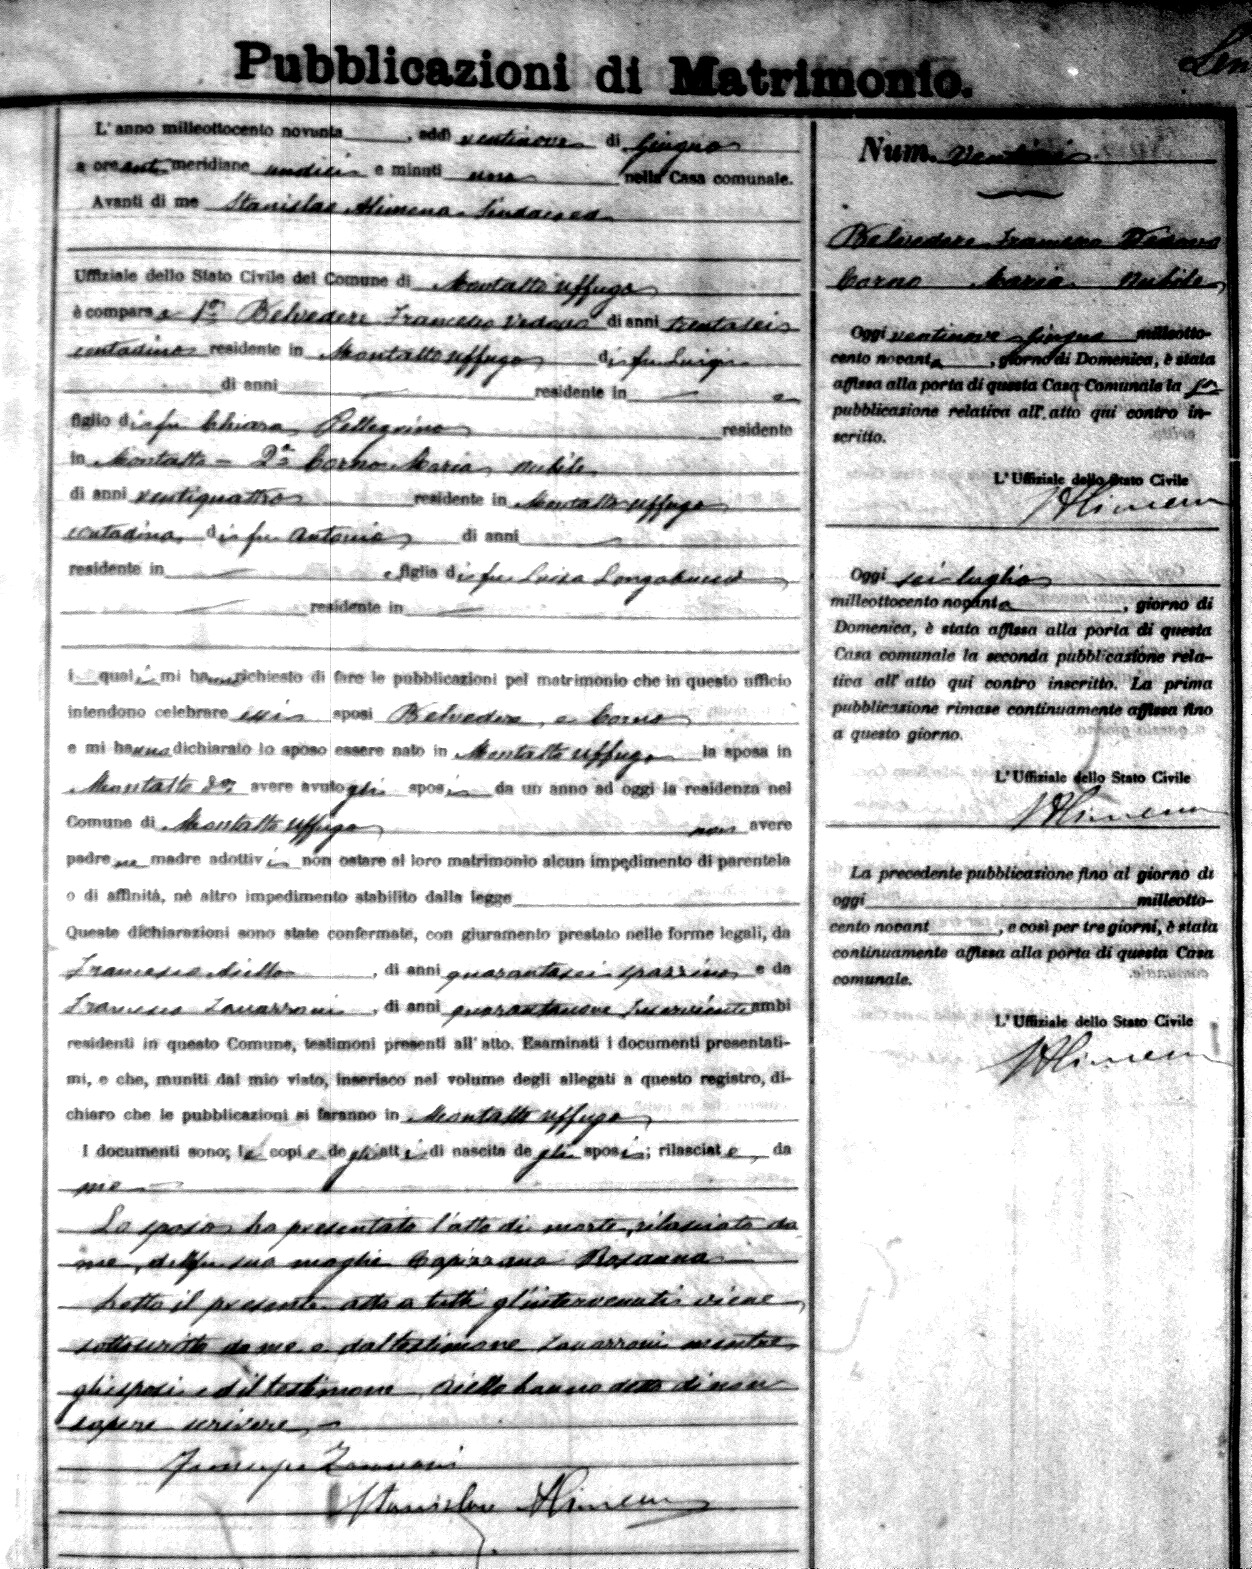 Pubblicazioni di Matrimonio.
L'anno milleottocento novanta, addì ventinove di Giugno
a ore anti meridiane undici e minuti uno nella Casa comunale.
Avanti di me Stanislao Alimena Sindaco ed
Uffiziale dello Stato Civile del Comune di Montalto Uffugo
è compars o 1° Belvedere Francesco vedovo di anni trentasei
contadino residente in Montalto Uffugo di fu Luigi
di anni residente in e
figlio di fu Chiara Pellegrino residente
in Montalto - 2a Corno Maria nubile
di anni ventiquattro residente in Montalto Uffugo
contadina, di fu Antonio di anni
residente in e figlia di fu Luisa Longobucco
residente in
i quali mi hanno richiesto di fare le pubblicazioni pel matrimonio che in questo ufficio
intendono celebrare essi sposi Belvedere e Corno
e mi hanno dichiarato lo sposo essere nato in Montalto Uffugo la sposa in
Montalto avere avuto gli sposi da un anno ad oggi la residenza nel
Comune di Montalto Uffugo non avere
padre ne madre adottivi non ostare al loro matrimonio alcun impedimento di parentela
o di affinità, nè altro impedimento stabilito dalla legge
Queste dichiarazioni sono state confermate, con giuramento prestato nelle forme legali, da
Francesco Aiello, di anni quarantasei spazzino e da
Francesco Zavarroni, di anni quarantanove Inserviente ambi
residenti in questo Comune, testimoni presenti all'atto. Esaminati i documenti presentati-
mi, e che, muniti dal mio visto, inserisco nel volume degli allegati a questo registro, di-
chiaro che le pubblicazioni si faranno in Montalto Uffugo
I documenti sono; le copie degli atti di nascita degli sposi; rilasciate, da
me
Lo sposo ha presentato l'atto di morte, rilasciato da
me, della fu sua moglie Capizzano Rosanna
Letto il presente atto a tutti gl'intervenuti viene
sottoscritto da me e dal testimone Zavarroni mentre
gli sposi ed il testimone Aiello hanno detto di non
sapere scrivere
Zavarroni
Stanislao Alimena
Num.
Belvedere Francesco Vedovo
Corno Maria Nubile
Oggi ventinove Giugno milleotto-
cento novanta, giorno di Domenica, è stata
affissa alla porta di questa Casa Comunale la 1a
pubblicazione relativa all'atto qui contro in-
scritto.
L'Uffiziale dello Stato Civile
SAlimena
Oggi sei luglio
milleottocento novanta, giorno di
Domenica, è stata affissa alla porta di questa
Casa comunale la seconda pubblicazione rela-
tiva all'atto qui contro inscritto. La prima
pubblicazione rimase continuamente affissa fino
a questo giorno.
L'Uffiziale dello Stato Civile
SAlimena
La precedente pubblicazione fino al giorno di
oggi milleotto-
cento novant, e così per tre giorni, è stata
continuamente affissa alla porta di questa Casa
comunale.
L'Uffiziale dello Stato Civile
SAlimena